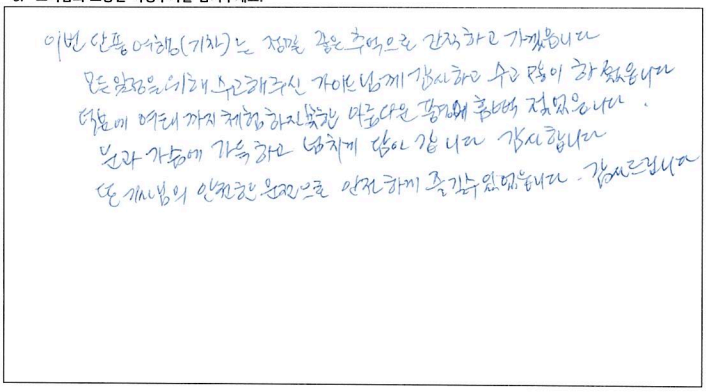 이번 단풍 여행(기차)는 정말 좋은 추억으로 간직하고 가겠습니다
모든 일정을 위해 수고해주신 가이드님께 감사하고 수고 많이 하셨습니다
덕분에 여태까지 체험하지 못한 아름다운 풍경에 흠뻑 젖었습니다.
눈과 가슴에 가득하고 넘치게 담아 갑니다 감사합니다
또 기사님의 안전한 운전으로 안전하게 즐길수 있었습니다. 감사드립니다